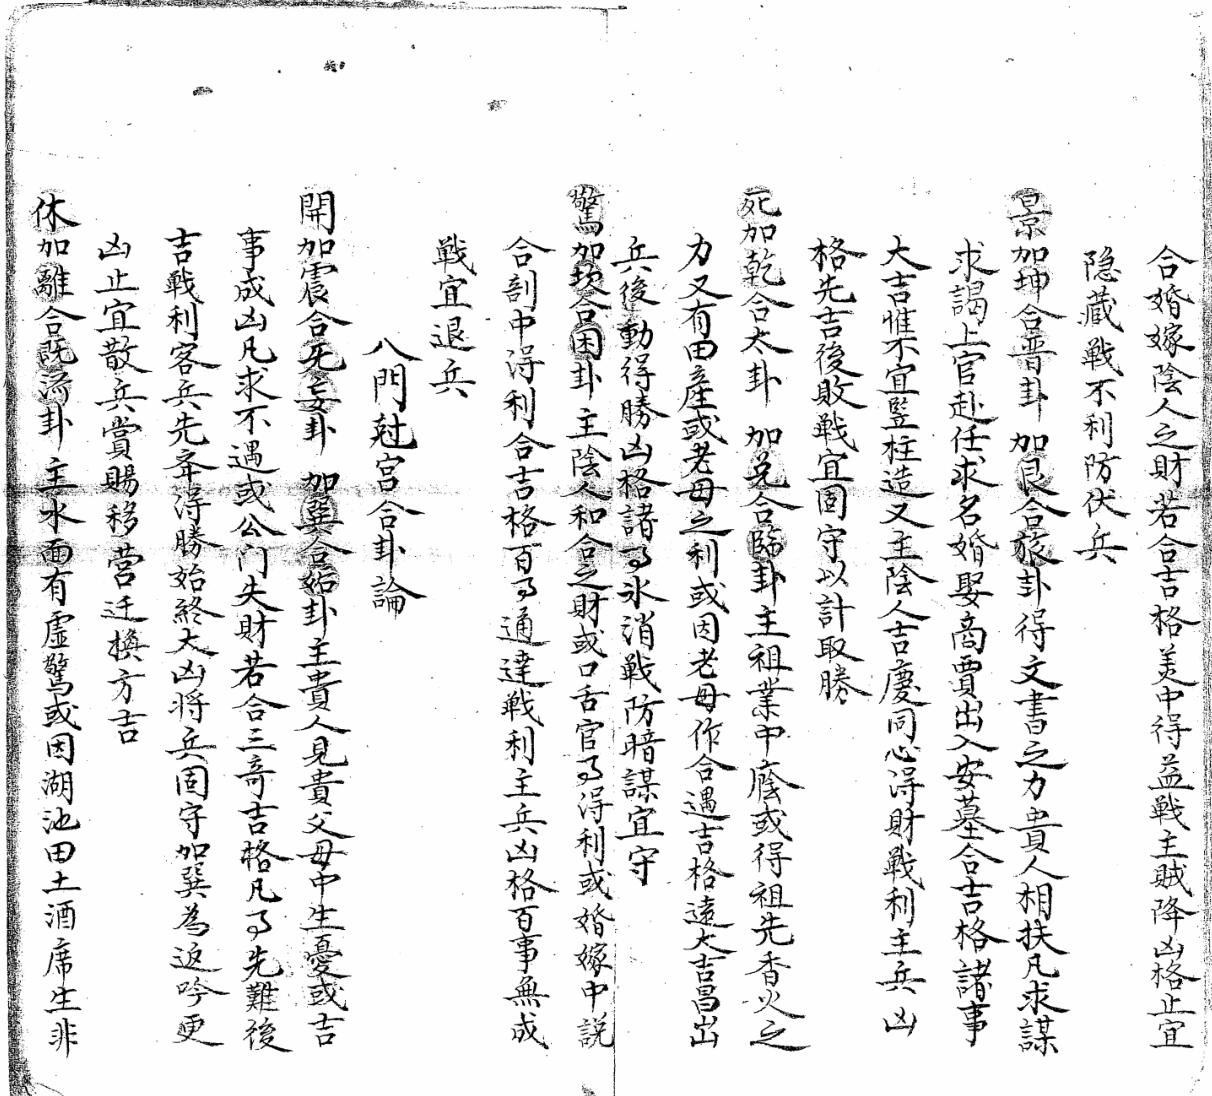 合婚嫁陰人之財若合吉格美中得益戦主賊降凶格止宜
隐藏戦不利防伏兵
景加坤合晋卦 加艮合旅卦得文書之力貴人相扶凡求謀
求謁上官赴任求名婚娶商賈出入安墓合吉格諸事
大吉惟不宜竪柱造又主陰人吉慶同心得財戦利主兵凶
格先吉後敗戦宜固守以計取勝
死加乾合太卦 加兑合臨卦主祖業中廕或得祖先香火之
力又有田產或老母之利或因老母作合遇吉格遠大吉昌出
兵後動得勝凶格諸事氷消戦防暗謀宜守
驚加坎合困卦主陰人和合之財或口舌官事得利或婚嫁中説
合剖中得利合吉格百事通達戦利主兵凶格百事無成
戦宜退兵
八門尅宮合卦論
開加震合无妄卦 加巽合姤卦主貴人見貴父母中生憂或吉
事成凶凡求不遇或公门失財若合三竒吉格凡事先難後
吉戦利客兵先舉得勝始終大凶将兵固守加巽為返吟更
凶止宜散兵賞賜移营迁換方吉
休加離合既济卦 主水面有虛驚或因湖池田土酒席生非